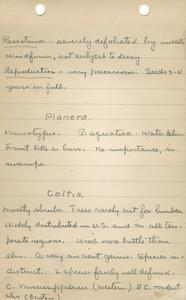 Resistance - severely defoliated by insects
windfirm, not subject to decay
Reproduction - very precarious. Seeds 3-4
years in full.
Planera.
Monotypic. P. aquatica - Water Elm.
Fruit like a burr. No importance, in
swamps.
Celtis
mostly shrubs. Trees rarely cut for lumber
Widely distributed in U.S. and in all tem-
perate regions. Wood more brittle than
elm. A very ancient genus. Species in-
distinct. 2 species fairly well defined.
C. Mississippiensis (Western) & C. occident-
alis (Eastern)